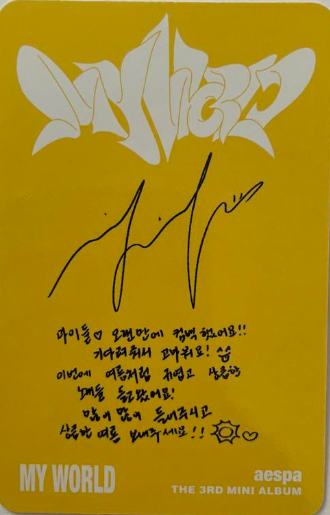 MY WORLD
마이들♡ 오랜만에 컴백했어요!!
기다려줘서 고마워요! ^^
이번에 여름처럼 귀엽고 상큼한
노래들 들고왔어요!
많이 많이 들어주시고
상큼한 여름 보내주세요!!
MY WORLD
aespa
THE 3RD MINI ALBUM